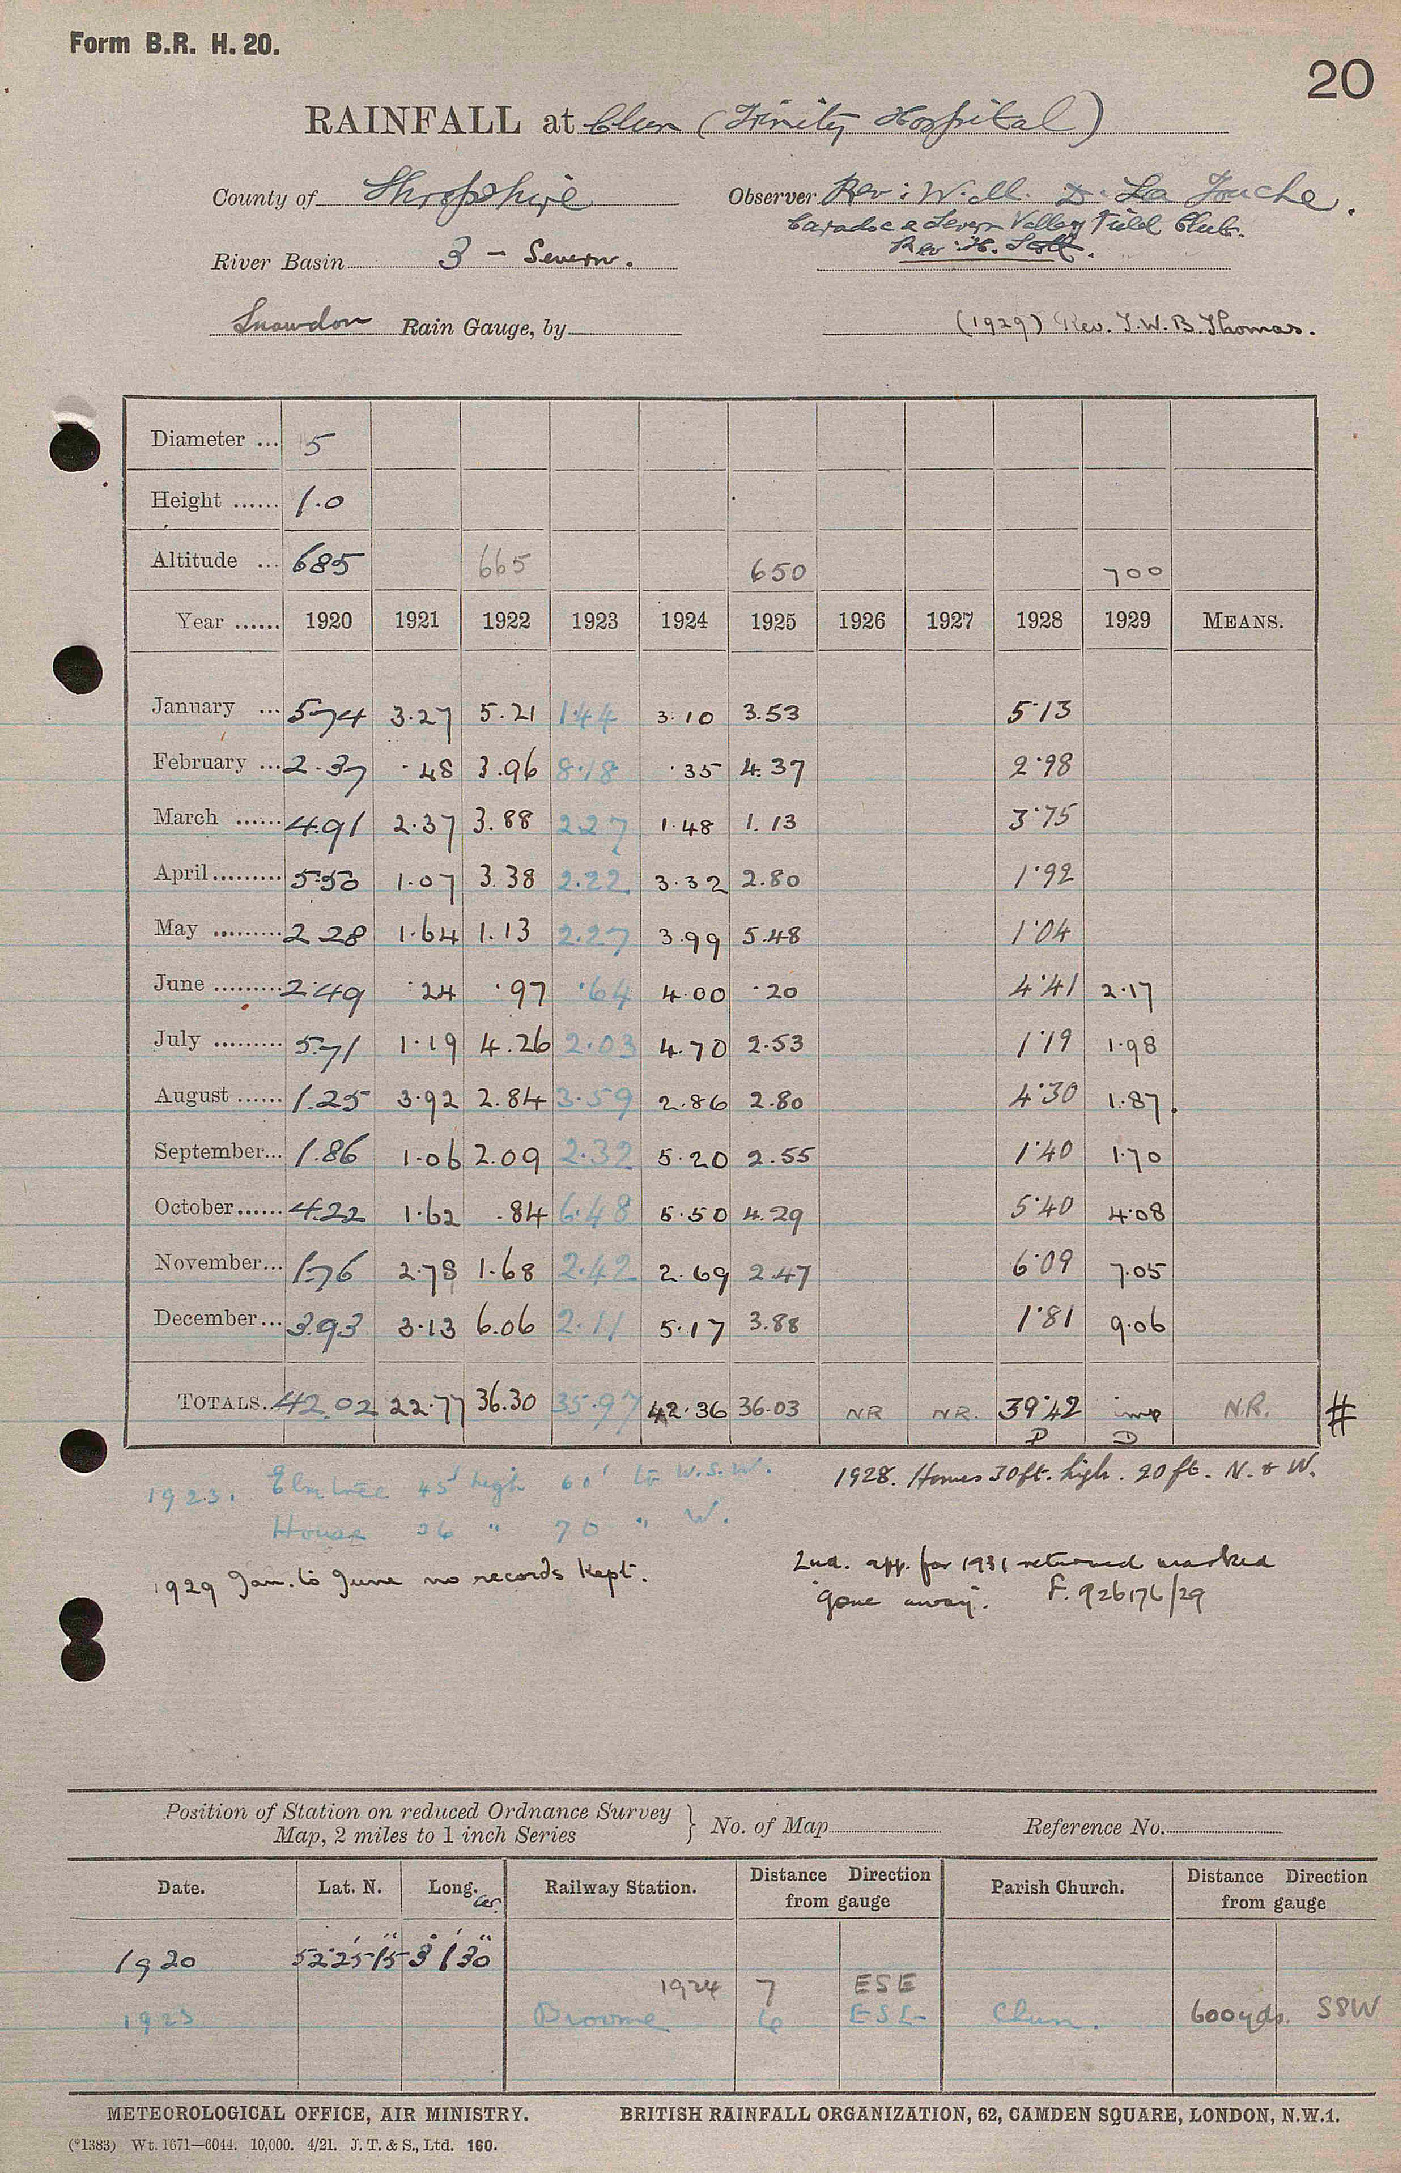 Form B.R. H. 20.
20
RAINFALL at Clun (Trinity Hospital)
County of Shropshire Observer Rev: W. M. D. La Touche.
Caradoc & Severn Valley Field Club.
River Basin 3 - Severn. Rev: H.
Snowdon Rain Gauge, by (1929) Rev. T.W.B. Thomas.
Diameter ... 5
Height ...... 1.0
Altitude ... 685 665 650 700
Year ...... 1920 1921 1922 1923 1924 1925 1926 1927 1928 1929 MEANS.
January ... 5.74 3.27 5.21 1.44 3.10 3.53 5.13
February ... 2.37 .48 3.96 8.18 .35 4.37 2.98
March ...... 4.91 2.37 3.88 2.27 1.48 1.13 3.75
April ......... 5.50 1.07 3.38 2.22 3.32 2.80 1.92
May ......... 2.28 1.64 1.13 2.27 3.99 5.48 1.04
June ......... 2.49 .24 .97 .64 4.00 .20 4.41 2.17
July ......... 5.71 1.19 4.26 2.03 4.70 2.53 1.19 1.98
August ...... 1.25 3.92 2.84 3.59 2.86 2.80 4.30 1.87
September... 1.86 1.06 2.09 2.32 5.20 2.55 1.40 1.70
October...... 4.22 1.62 .84 6.48 5.50 4.29 5.40 4.08
November... 1.76 2.78 1.68 2.42 2.69 2.47 6.09 7.05
December... 3.93 3.13 6.06 2.11 5.17 3.88 1.81 9.06
TOTALS. 42.02 22.77 36.30 35.97 42.36 36.03 NR NR. 39.42 imp N.R. #
P D
1923. Elm tree 45' high 60' to W.S.W. 1928. Homes 30ft. high. 20ft. N. & W.
House 36 " 70 " W.
1929 Jan. to June no records kept. 2nd. app. for 1931 returned marked
"gone away". F. 926176/29
Position of Station on reduced Ordnance Survey
Map, 2 miles to 1 inch Series } No. of Map Reference No.
Date. Lat. N. Long. Railway Station. Distance Direction from gauge Parish Church. Distance Direction from gauge
1920 52°25'15" 3°1'30"
1924 7 ESE
1923 Broome 6 ESE Clun. 600yds. SSW
METEOROLOGICAL OFFICE, AIR MINISTRY. BRITISH RAINFALL ORGANIZATION, 62, CAMDEN SQUARE, LONDON, N.W.1.
(*1383) Wt. 1671—6044. 10,000. 4/21. J. T. & S., Ltd. 160.